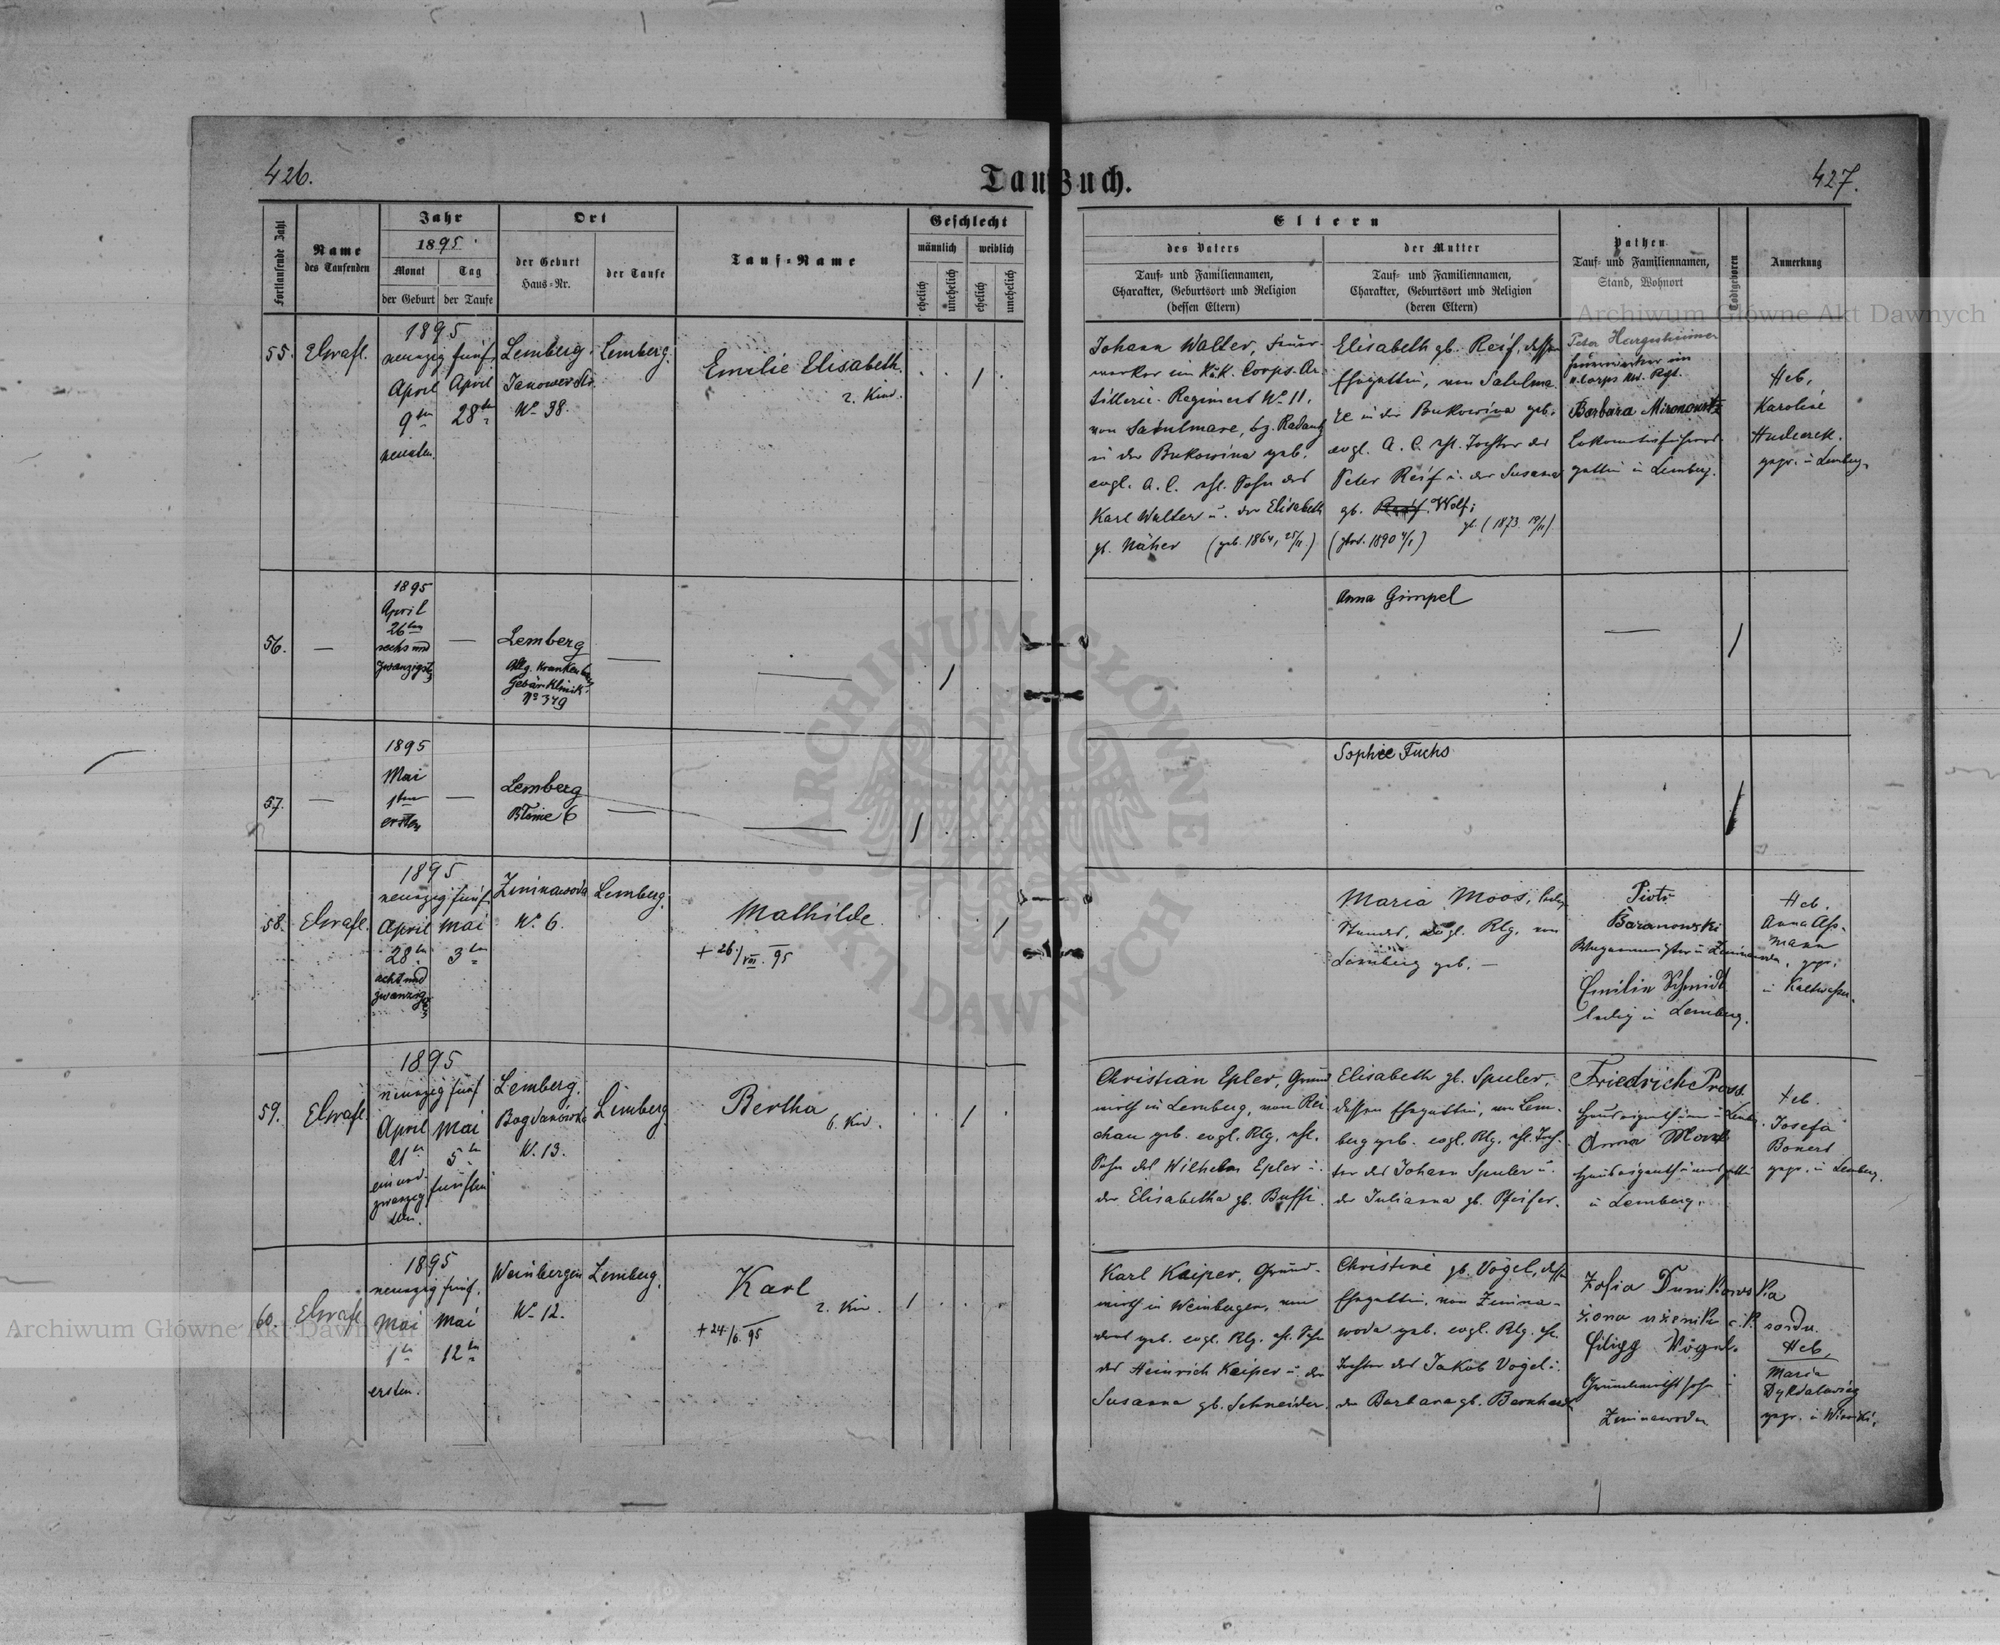 426.
Taufbuch.
427.
Fortlaufende Zahl
Name
des Taufenden
Jahr
1895.
Monat
Tag
der Geburt
der Taufe
Ort
der Geburt
Haus=Nr.
der Taufe
Tauf=Name
Geschlecht
männlich
weiblich
ehelich
unehelich
ehelich
unehelich
Eltern
des Vaters
Tauf= und Familiennamen,
Charakter, Geburtsort und Religion
(dessen Eltern)
der Mutter
Tauf= und Familiennamen,
Charakter, Geburtsort und Religion
(deren Eltern)
Pathen
Tauf= und Familiennamen,
Stand, Wohnort
Todtgeboren
Anmerkung
55.
1895
neunzig fünf
April
9ten
neunten
April
28ten
Lemberg.
Janower Str
No 38.
Lemberg.
Emilie Elisabeth.
2. Kind.
/
Johann Walter, Feuer-
werker im K.u.K. Corps-Ar-
tillerie-Regiment No 11,
von Satulmare, bz. Radautz
in der Bukowina geb.
evgl. A. C. ehl. Sohn des
Karl Walter u. der Elisabeth
gb. Näher (geb. 1864, 25/11.)
Elisabeth gb. Reif, dessen
Ehegattin, von Satulma-
re in der Bukowina geb.
evgl. A. C. ehl. Tochter des
Peter Reif u. der Susanna
gb. Wolf;
gb. (1873. 19/11)
Peter
Feuerwerker im
Barbara Mironowitz
Lokomotivführers-
gattin in Lemberg.
Heb.
Karoline
Hudecek.
gepr. in Lemberg.
56.
—
1895
April
26ten
sechs und
zwanzigsten
—
Lemberg
Allg. Krankenhaus
Gebär-Klinik.
No 349
—
—
/
Anna Gimpel
—
/
57.
—
1895
Mai
1ten
ersten
—
Lemberg
Błonie 6
—
—
/
Sophie Fuchs
/
58.
1895
neunzig fünf
April
28ten
acht und
zwanzigsten
Mai
3ten
Zimnawoda
No. 6.
Lemberg.
Mathilde
+ 26/VIII. 95
/
Maria Moos, ledig.
Standes, evgl. Rlg. von
Lemberg geb. —
Piotr
Baranowski
Emilie Schmidt
ledig in Lemberg.
Heb.
Anna Ass-
mann
gepr.
in Kaltwasser.
59.
1895
neunzig fünf
April
21ten
ein und
zwanzig
sten.
Mai
5ten
fünften
Lemberg.
Bogdanówka
No. 13.
Lemberg.
Bertha
6. Kind.
/
Christian Epler, Grund-
wirth in Lemberg, von Rei-
chau geb. evgl. Rlg. ehl.
Sohn des Wilhelm Epler u.
der Elisabetha gb. Buffi.
Elisabeth gb. Spuler,
dessen Ehegattin, von Lem-
berg geb. evgl. Rlg. ehl. Toch-
ter des Johann Spuler u.
der Julianna gb. Pfeifer.
Friedrich
Anna
in Lemberg.
Heb.
Josefa
Bonert
gepr. in Lemberg.
60.
1895
neunzig fünf.
Mai
1ten
ersten.
Mai
12ten
Weinbergen
No. 12.
Lemberg.
Karl
2. Kind.
+ 24/6. 95
/
Karl Keiper, Grund-
wirth in Weinbergen, von
geb. evgl. Rlg. ehl. Sohn
des Heinrich Keiper u. der
Susanna gb. Schneider.
Christine gb. Vogel, dessen
Ehegattin, von Zimna-
woda geb. evgl. Rlg. ehl.
Tochter des Jakob Vogel u.
der Barbara gb. Bernhard
Zofia Dunikowska
żona
Filipp Vogel.
Grundwirthssohn in
Zimnawoda
Heb.
Maria
gepr. in Winniki.
Archiwum Główne Akt Dawnych
Archiwum Główne Akt Dawnych
ARCHIWUM GŁÓWNE · AKT DAWNYCH ·